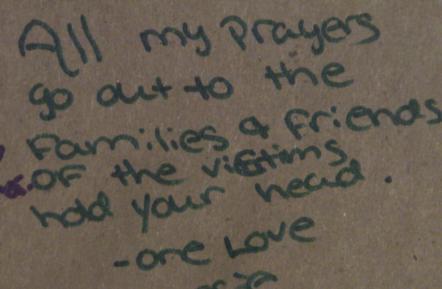 All my Prayers
go out to the
Families & friends
OF the victims
hold your head.
-one Love